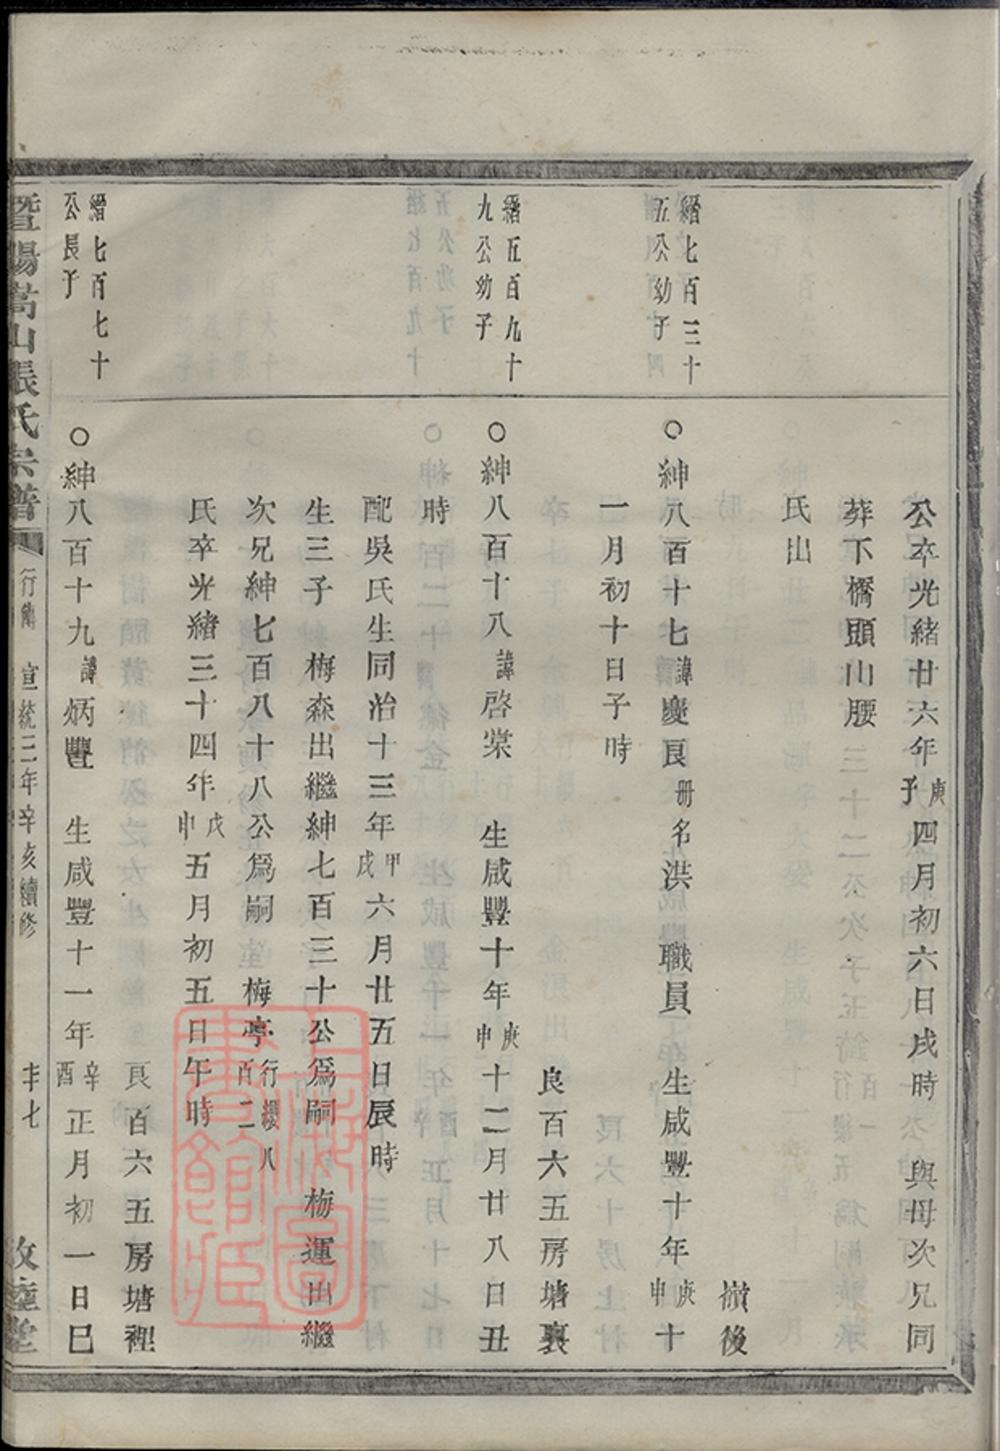 公卒光緒廿六年庚子四月初六日戌時　與母次兄同
葬下橋頭山腰
氏出
嶺後
縉七百三十
五公幼子
○紳八百十七諱慶良册名洪　職員　生咸豐十年庚申十
一月初十日子時
良百六五房塘裏
縉五百九十
九公幼子
○紳八百十八諱啓棠　生咸豐十年庚申十二月廿八日丑
時
配吳氏生同治十三年甲戌六月廿五日辰時
生三子　梅森出繼紳七百三十公爲嗣　梅運出繼
次兄紳七百八十八公爲嗣　梅亭行纓八百二
氏卒光緒三十四年戊申五月初五日午時
良百六五房塘裡
縉七百七十
公長子
○紳八百十九諱炳豐　生咸豐十一年辛酉正月初一日巳
暨陽嵩山張氏宗譜　行傳　宣統三年辛亥續修　敦睦堂
上海圖書館藏